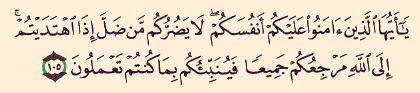 يَٰٓأَيُّهَا ٱلَّذِينَ ءَامَنُوا۟ عَلَيْكُمْ أَنفُسَكُمْ ۖ لَا يَضُرُّكُم مَّن ضَلَّ إِذَا ٱهْتَدَيْتُمْ ۚ
إِلَى ٱللَّهِ مَرْجِعُكُمْ جَمِيعًا فَيُنَبِّئُكُم بِمَا كُنتُمْ تَعْمَلُونَ ١٠٥